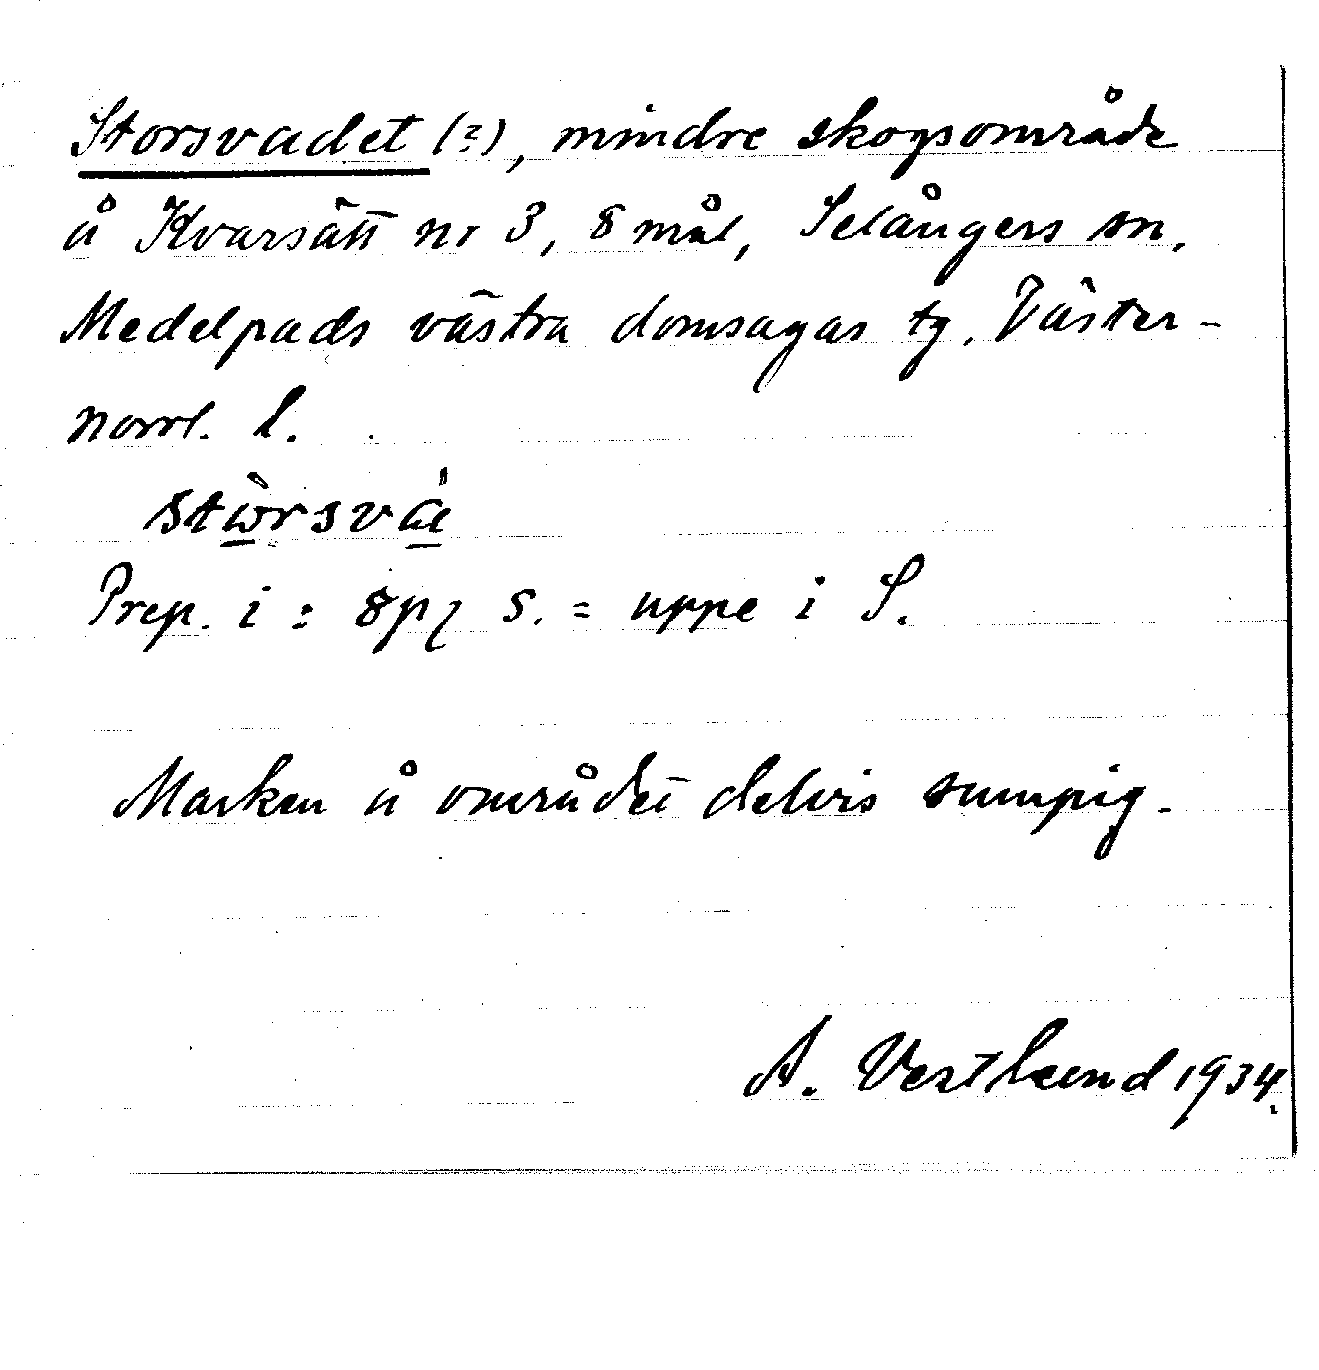 Storsvadet (?), mindre skogsområde
å Kvarsätt nr 3, 8 mål, Selångers sn,
Medelpads västra domsagas tg. Väster-
norrl. l.
Prep. i : s. = uppe i S.
Marken å området delvis sumpig.
A. Vestlund 1934.